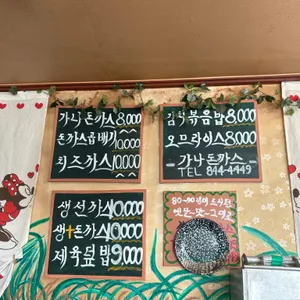 가나돈까스 8,000
돈까스곱배기 10,000
치즈까스 10,000
김치볶음밥 8,000
오므라이스 8,000
가나돈까스
TEL 844-4449
생선까스 10,000
생+돈까스 10,000
제육덮밥 9,000
80~90년대 도시락
옛날~맛~그대로